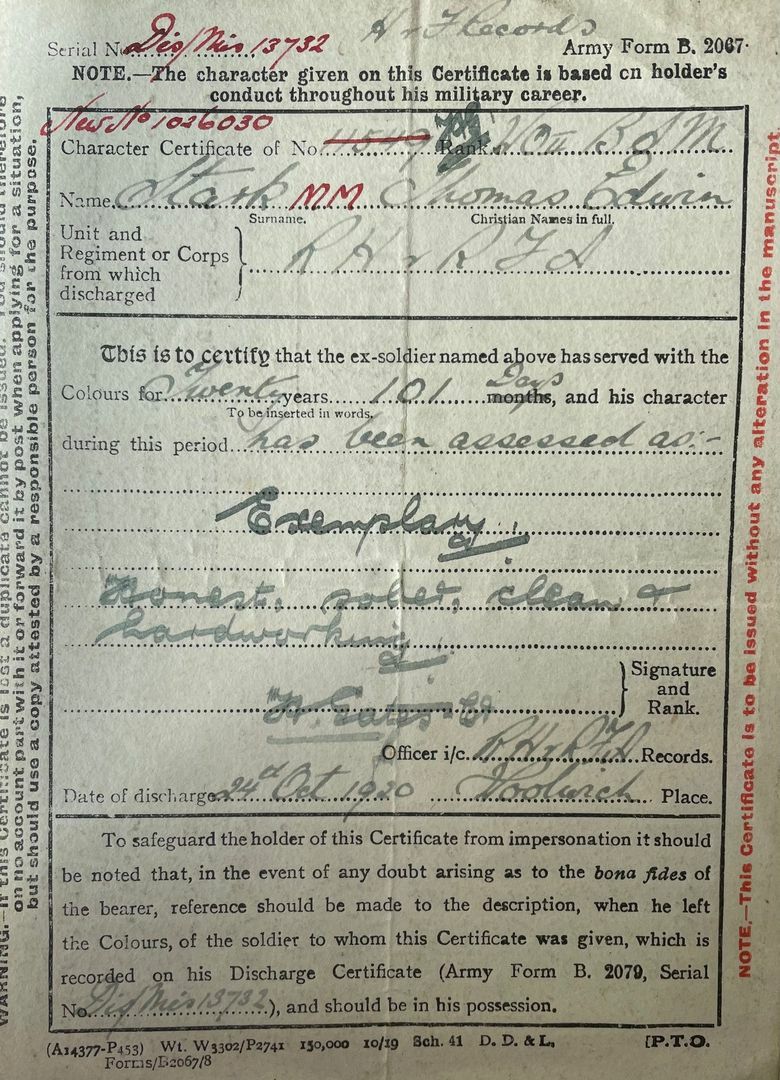 H & F Records
Serial No. Dis/Mis 13732 Army Form B. 2067.
NOTE.—The character given on this Certificate is based on holder's
conduct throughout his military career.
New No 1026030
Character Certificate of No. Rank WOII B S M
Name Stark MM Thomas Edwin
Surname. Christian Names in full.
Unit and
Regiment or Corps
from which
discharged
R H & R F A
This is to certify that the ex-soldier named above has served with the
Colours for Twenty years 101 months, Days and his character
To be inserted in words.
during this period has been assessed as:-
Exemplary.
Honest, sober, clean &
hardworking
Signature
and
Rank.
Officer i/c. RH & RFA Records.
Date of discharge 24th Oct 1920 Woolwich Place.
To safeguard the holder of this Certificate from impersonation it should
be noted that, in the event of any doubt arising as to the bona fides of
the bearer, reference should be made to the description, when he left
the Colours, of the soldier to whom this Certificate was given, which is
recorded on his Discharge Certificate (Army Form B. 2079, Serial
No. Dis/Mis 13732), and should be in his possession.
(A14377-P453) Wt. W3302/P2741 150,000 10/19 Sch. 41 D. D. & L. [P.T.O.
Forms/B2067/8
WARNING.—If this Certificate is lost a duplicate cannot be issued. You should therefore
on no account part with it or forward it by post when applying for a situation,
but should use a copy attested by a responsible person for the purpose.
NOTE.—This Certificate is to be issued without any alteration in the manuscript